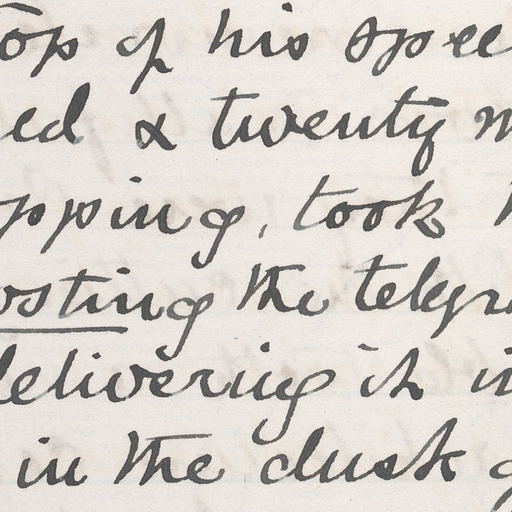 Top of his spee
ed & twenty m
pping, took h
osting the telegra
delivering it in
in the dusk